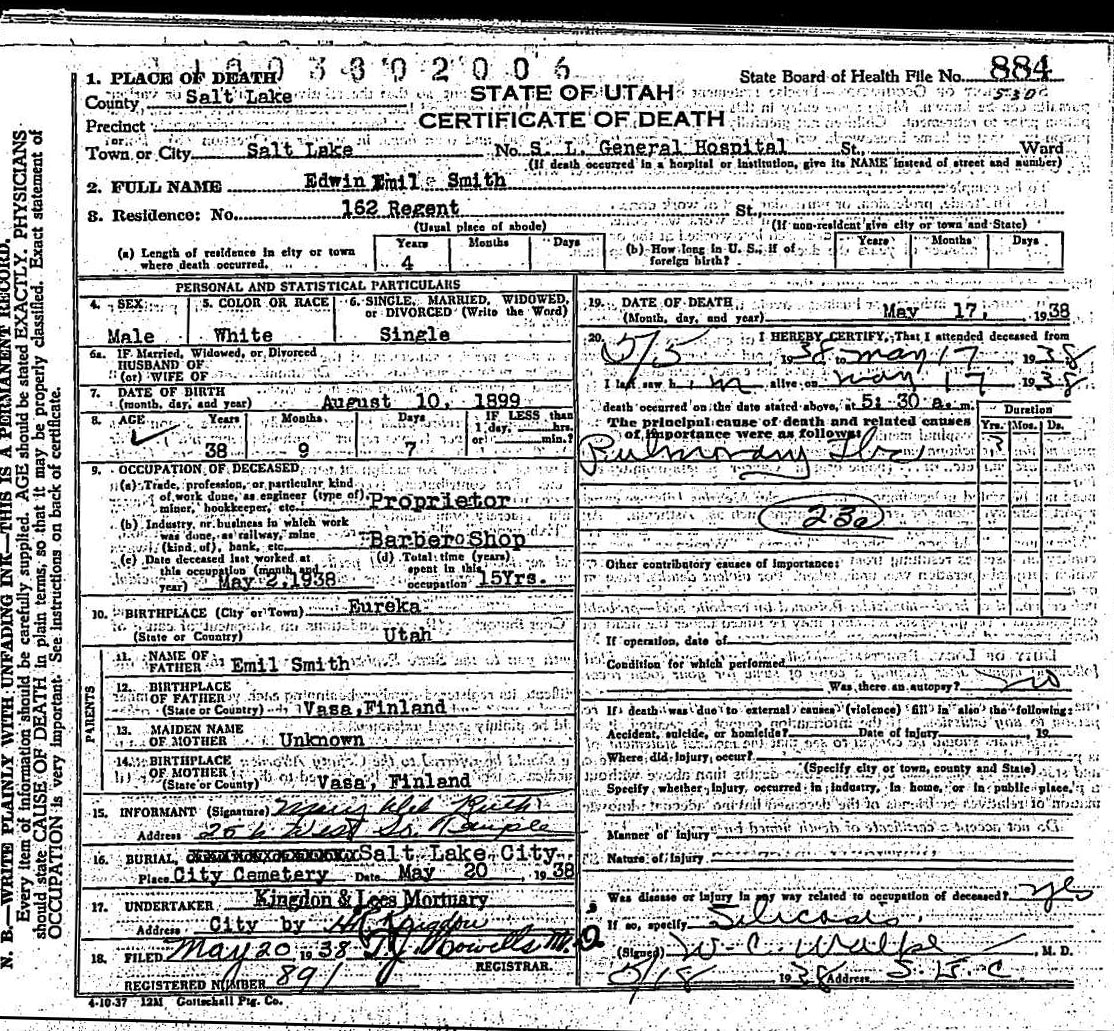 1003302006
1. PLACE OF DEATH
State Board of Health File No. 884
County Salt Lake
STATE OF UTAH
530
Precinct
CERTIFICATE OF DEATH
or
Town or City Salt Lake No. S. L. General Hospital St., Ward
(If death occurred in a hospital or institution, give its NAME instead of street and number)
2. FULL NAME Edwin Emil Smith
3. Residence: No. 162 Regent St.,
(Usual place of abode) (If non-resident give city or town and State)
(a) Length of residence in city or town where death occurred. Years 4 Months Days
(b) How long in U. S., if of foreign birth? Years Months Days
PERSONAL AND STATISTICAL PARTICULARS
4. SEX Male
5. COLOR OR RACE White
6. SINGLE, MARRIED, WIDOWED, or DIVORCED (Write the Word) Single
6a. IF Married, Widowed, or Divorced
HUSBAND OF
(or) WIFE OF
7. DATE OF BIRTH
(month, day, and year) August 10, 1899
8. AGE Years 38 Months 9 Days 7 IF LESS than 1 day, hrs. or min.?
9. OCCUPATION OF DECEASED
(a) Trade, profession, or particular kind
of work done, as engineer (type of) Proprietor
miner, bookkeeper, etc.
(b) Industry, or business in which work
was done, as railway, mine
(kind of), bank, etc. Barber Shop
(c) Date deceased last worked at
this occupation (month and
year) May 2, 1938
(d) Total time (years)
spent in this
occupation 15Yrs.
10. BIRTHPLACE (City or Town) Eureka
(State or Country) Utah
PARENTS
11. NAME OF
FATHER Emil Smith
12. BIRTHPLACE
OF FATHER
(State or Country) Vasa, Finland
13. MAIDEN NAME
OF MOTHER Unknown
14. BIRTHPLACE
OF MOTHER
(State or Country) Vasa, Finland
15. INFORMANT (Signature)
Address West So. Temple
16. BURIAL, Salt Lake City
Place City Cemetery Date May 20, 1938
17. UNDERTAKER Kingdon & Lees Mortuary
Address City by Kingdon
18. FILED May 20 1938
REGISTRAR.
REGISTERED NUMBER 891
4-10-37 12M Gottschall Ptg. Co.
19. DATE OF DEATH
(Month, day, and year) May 17, 1938
20. I HEREBY CERTIFY, That I attended deceased from
5/5 1938 to May 17 1938
I last saw him alive on May 17 1938
death occurred on the date stated above, at 5: 30 a. m.
The principal cause of death and related causes
of importance were as follows:
Duration
Yrs. Mos. Ds.
Pulmonary Tbc
23a
Other contributory causes of importance:
If operation, date of
Condition for which performed
Was there an autopsy? no
If death was due to external causes (violence) fill in also the following:
Accident, suicide, or homicide? Date of injury , 19
Where did injury occur?
(Specify city or town, county and State)
Specify whether injury occurred in industry, in home, or in public place.
Manner of injury
Nature of injury
Was disease or injury in any way related to occupation of deceased? yes
If so, specify Silicosis
(Signed) M. D.
5/18 1938 Address S. L. C.
N. B.—WRITE PLAINLY WITH UNFADING INK—THIS IS A PERMANENT RECORD.
Every item of information should be carefully supplied. AGE should be stated EXACTLY. PHYSICIANS
should state CAUSE OF DEATH in plain terms, so that it may be properly classified. Exact statement of
OCCUPATION is very important. See instructions on back of certificate.